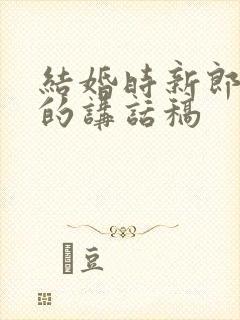 結婚時新郎
的講話稿
豆